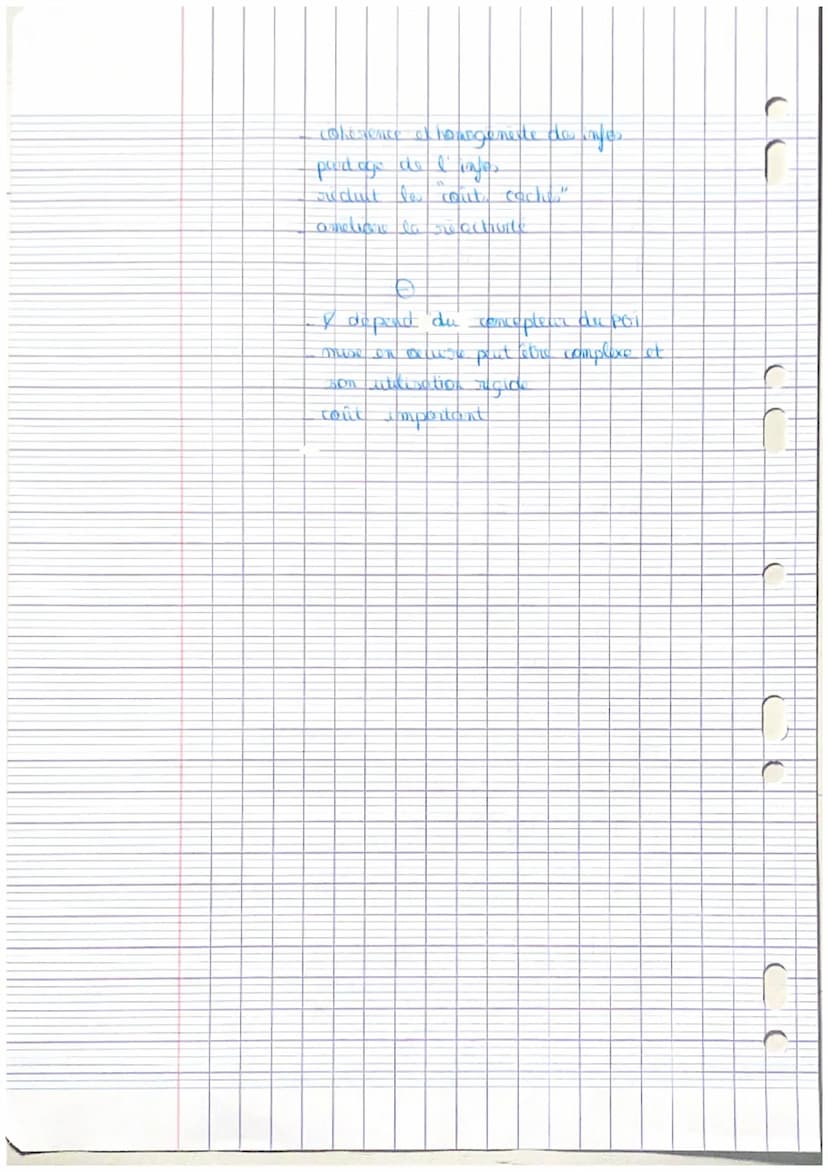 - cohérence et homogénéité des infos
partage de l'infos
- réduit les "coûts cachés"
- améliore la réactivité
⊖
- dépend du concepteur du PGI
- mise en œuvre peut être complexe et
son utilisation rigide
- coût important
-